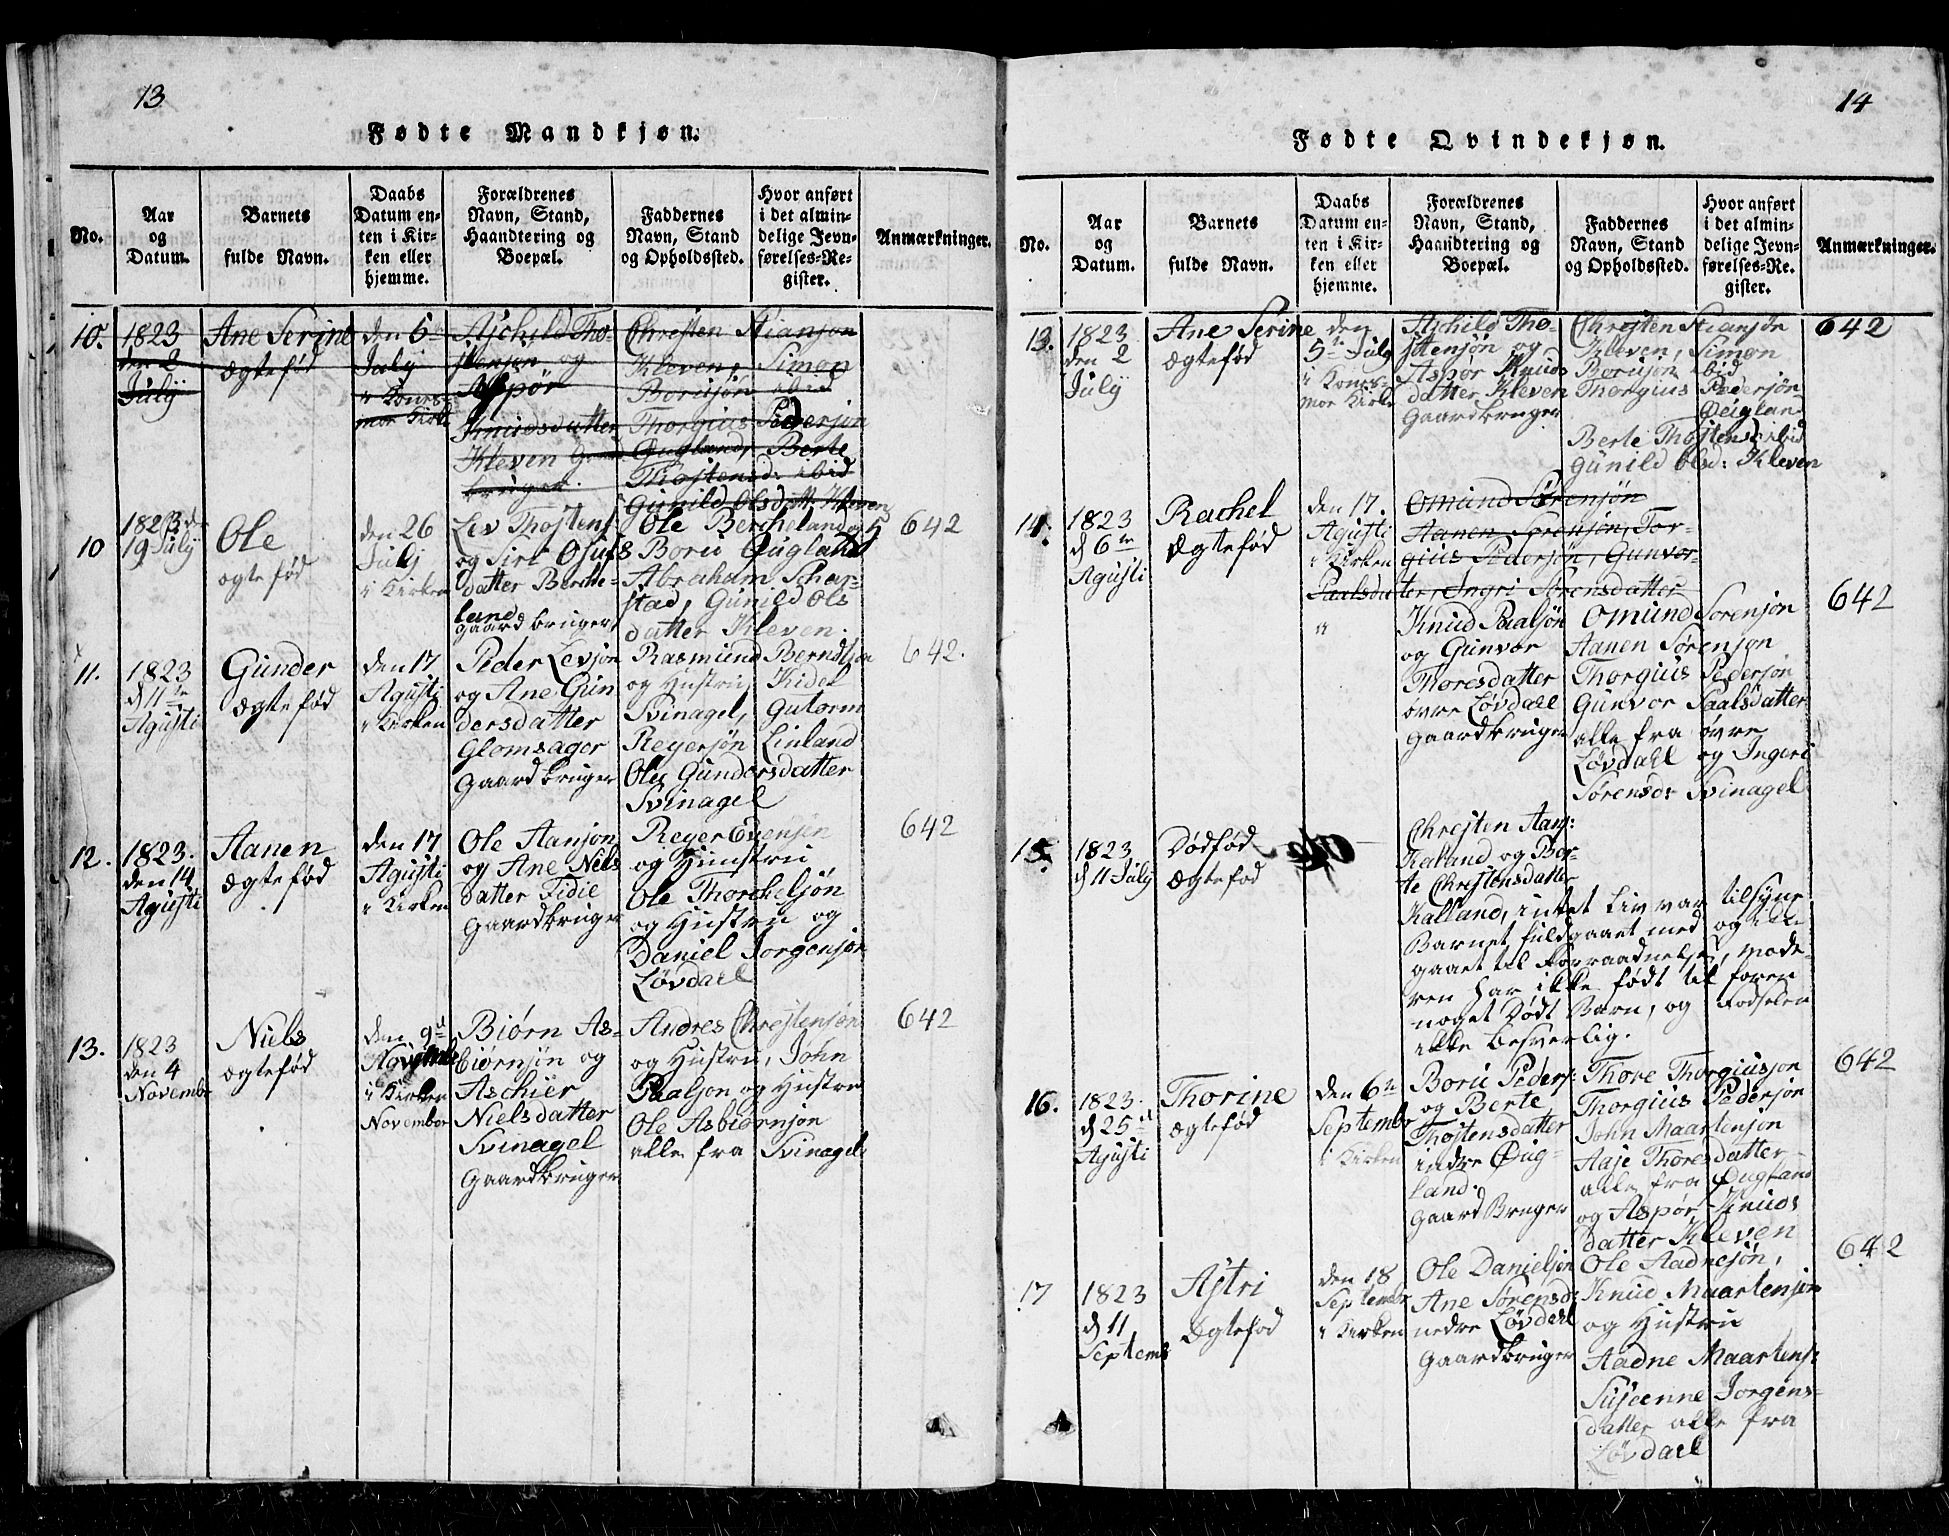 13
Fødte Mandkjøn.
No.
Aar
og
Datum.
Barnets
fulde Navn.
Daabs
Datum en-
ten i Kir-
ken eller
hjemme.
Forældrenes
Navn, Stand,
Haandtering og
Boepæl.
Faddernes
Navn, Stand
og Opholdssted.
Hvor anført
i det almin-
delige Jevn-
førelses-Re-
gister.
Anmærkninger.
10.
1823
den 2
July
Ane Serine
ægtefød
den 5
July
i Konés-
mor Kirke
Aschild Tho-
stensøn og
Aspør
Knudsdatter
Kleven Gaard
bruger.
Chresten Stiansøn
Kleven, Simon
Borusøn ibid
Thorgius Pedersøn
Øugland, Berte
Thostensd: ibid
Gunild Olsdatt. Kleven
10
1823
19 July
Ole
ægtefød
den 26
July
i Kirken
Lev Thostens
og Siri Osufs
datter Berche-
land
gaardbruger
Ole Bercheland og
Boru Øugland
Abraham Schar-
stad, Gunild Ols
datter Kleven.
642
11.
1823
d 11te
Agusti
Gunder
ægtefød
den 17
Agusti
i Kirken
Peder Levsøn
og Ane Gun
dersdatter
Glomsager
Gaardbruger
Rasmund Berndtsøn
og Hustru, Kidel
Svinagel, Gutorm
Reyersøn Linland
Olu Gundersdatter
Svinagel
642.
12.
1823.
den 14
Agusti
Aanen
ægtefød
den 17
Agusti
i Kirken
Ole Aansøn
og Ane Niels
datter Fidie
Gaardbruger
Reyer Evensøn
og Hustru
Ole Thorchelsøn
og Hustru og
Daniel Jorgensøn
Løvdael
642
13.
1823
den 4
Novembr
Niels
ægtefød
den 9d
Novembr
i Kirken
November
Biørn As-
biørnsøn og
Aschier
Nielsdatter
Svinagel
Gaardbruger
Andres Chrestensøn
og Hustru, John
Paalsøn og Hustru
Ole Asbiørnsøn
alle fra Svinagel
642
14
Fødte Qvindekjøn.
No.
Aar
og
Datum.
Barnets
fulde Navn.
Daabs
Datum en-
ten i Kir-
ken eller
hjemme.
Forældrenes
Navn, Stand,
Haandtering og
Boepæl.
Faddernes
Navn, Stand
og Opholdssted.
Hvor anført
i det almin-
delige Jevn-
førelses-Re-
gister.
Anmærkninger.
13.
1823
den 2
July
Ane Serine
ægtefød
den
5te July
i Konés-
mor Kirke
Aschild Tho-
stensøn og
Aspør Knuds
datter Kleven
Gaardbruger
Chresten Stiansøn
Kleven, Simon
Borusøn ibid
Thorgius Pedersøn
Øugland
Berte Thostensd: ibid
Gunild Olsd: Kleven
642
14.
1823
d 6te
Agusti
Rachel
Ægtefød
den 17.
Agusti
i Kirken
Omund Sørensøn
Aanen Sørensøn, Tor-
gius Pedersøn, Gunvor
Paalsdatter, Ingri Sørensdatter
Knud Paalsøn
og Gunvor
Thoresdatter
øvre Løvdael
gaardbruger
Omund Sorensøn
Aanen Sørensøn
Thorgius Pedersøn
Gunvor Paalsdatter
alle fra øvre
Løvdael og Ingeri
Sørensd: Svinagel
642
15.
1823
d 11 July
Dødfød
ægtefød
Chresten Aans:
Kaland og Ber-
te Chrestensdatter
Kalland, intet Liv var tilsyne
Barnet fuldgaaet med og ud-
gaaet til Forraadnelse, mode-
ren har ikke født til foren
noget Dødt Barn, og Fødselen
ikke besverlig.
16.
1823.
d 25d
Agusti
Thorine
ægtefød
den 6te
Septembr
i Kirken
Boru Peders:
og Berte
Thostensdatter
indre Øug-
land.
Gaard Bruger
Thore Thorgiusøn
Thorgius Pedersøn
John Maartensøn
Aase Thoresdatter
alle fra Øugland
og Aspør Knuds
datter Kleven
642
17
1823
d 11
Septemb
Astri
Ægtefød
den 18
Septembr
i Kirken
Ole Danielsøn
Ane Sørensd:
nedre Løvdael
Gaardbruger
Ole Aadnesøn,
Knud Maartensøn
og Hustru
Aadne Maartens:
Susænne Jorgens-
datter alle fra
Løvdael
642